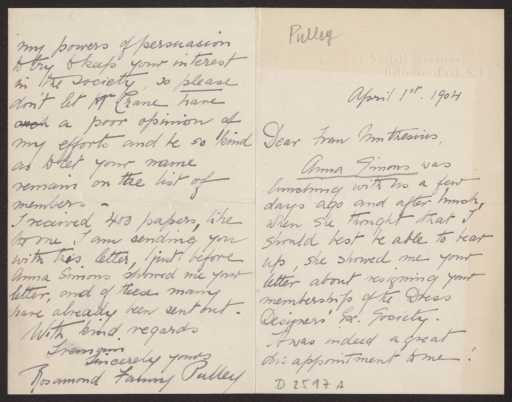 Pulley
April 1st. 1904
Dear Frau Muthesius,
Anna Simons was
lunching with us a few
days ago and after lunch,
when she thought that I
should best be able to bear
up, she showed me your
letter about resigning your
membership of the Dress
Designers' Ex. Society.
It was indeed a great
dis-appointment to me!
D 2597 A
my powers of persuasion
to try to keep your interest
in the Society, so please
don't let Mr Crane have
such a poor opinion of
my efforts and be so kind
as to let your name
remain on the list of
members -
I received 403 papers, like
to one I am sending you
with this letter, just before
Anna Simons showed me your
letter, and of these many
have already been sent out.
With kind regards
I remain
Sincerely yours
Rosamond Fanny Pulley